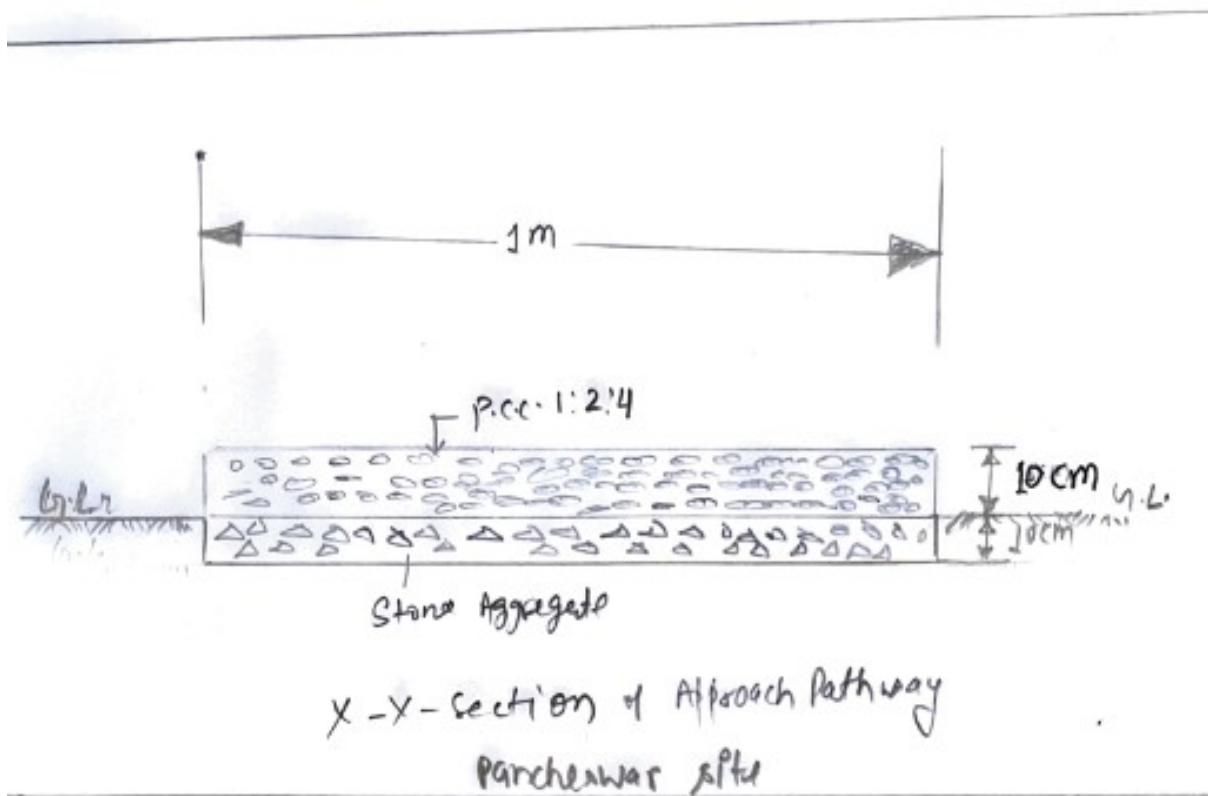 1m
P.C.C. 1:2:4
10 cm
G.L.
G.L.
10cm
Stone Aggregate
X-X-Section of Approach Pathway
Pancheswar site